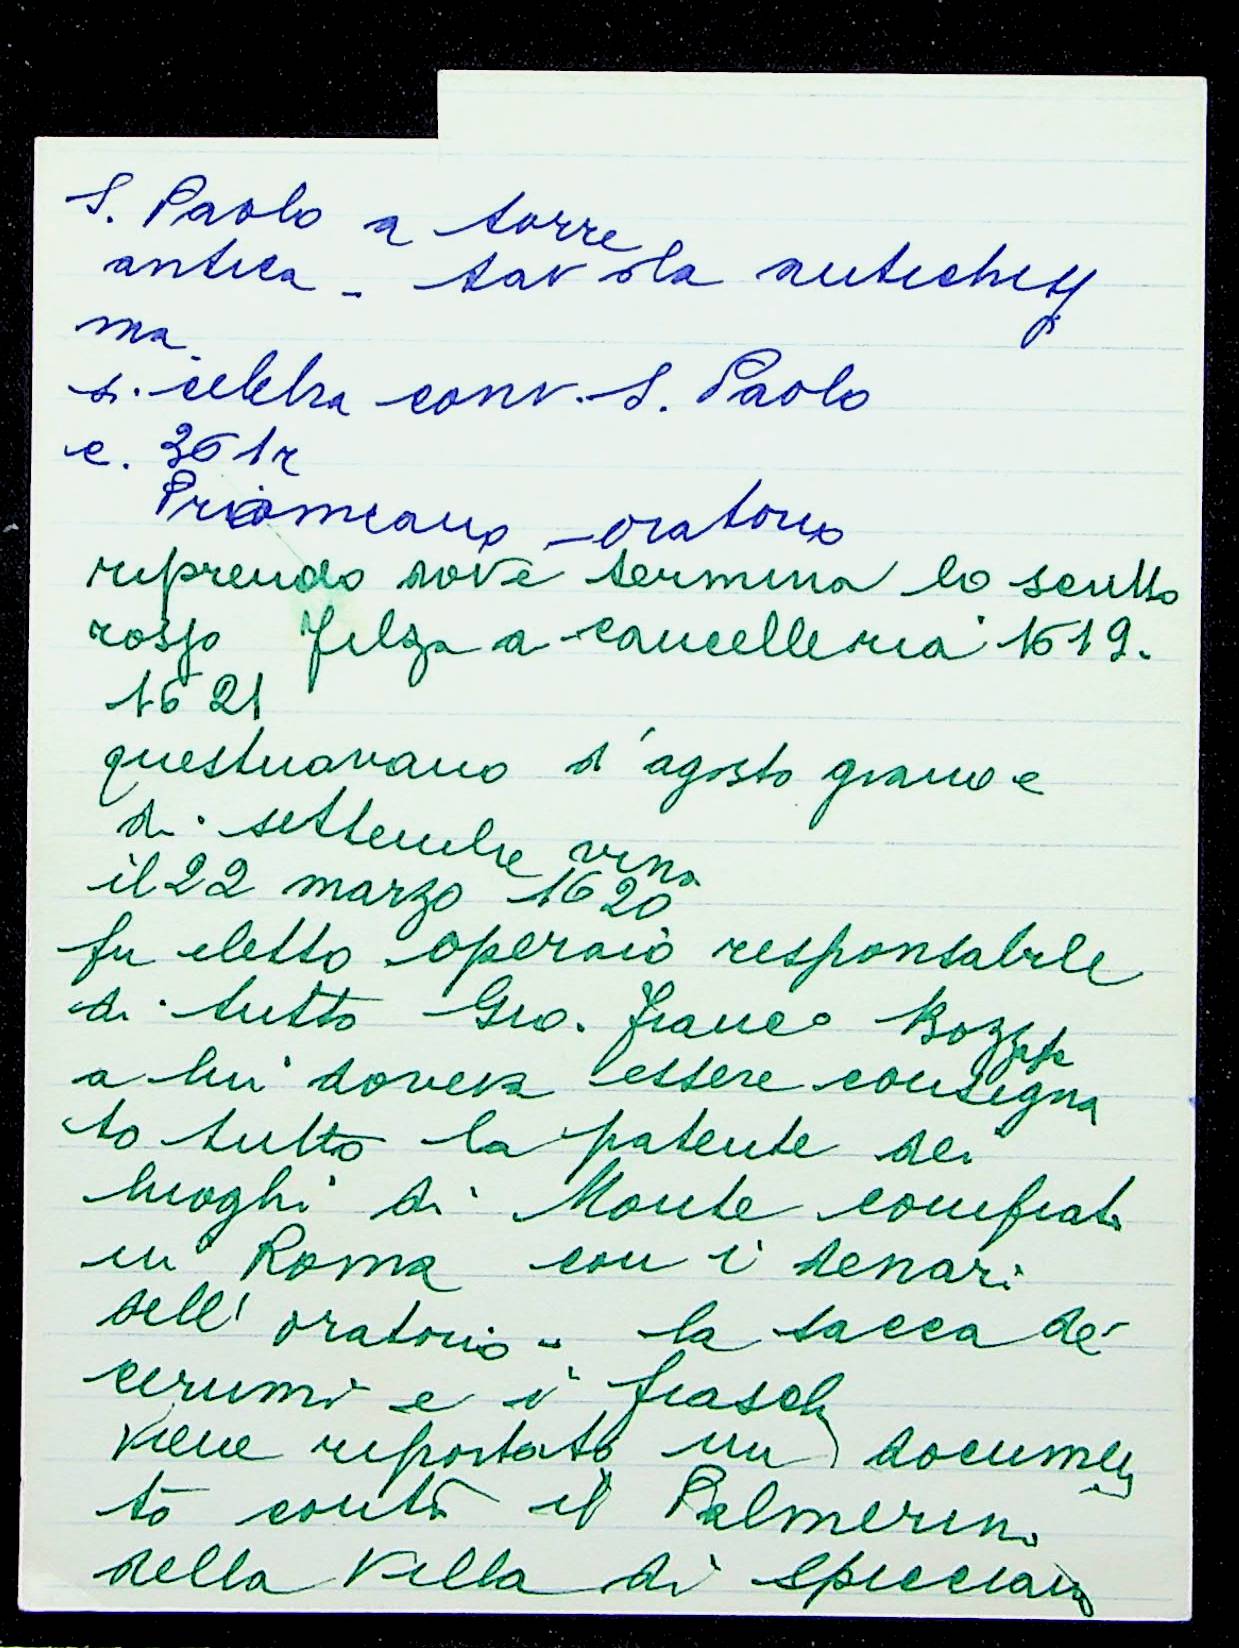 S. Paolo a torre
antica - tavola antichiss
ma.
si celebra conv. S. Paolo
c. 361r
oratorio
riprendo dove termina lo scritto
rosso filza a cancelleria 1619-
1621
questuavano d'agosto grano e
di settembre vino
il 22 marzo 1620
fu eletto operaio responsabile
di tutto Gio. Franc°
a lui doveva essere consegna
to tutto la patente dei
luoghi di Monte comprati
in Roma con i denari
dell'oratorio - la sacca de
cerumi e i
viene riportato un documen
to contro il Palmerini
della Villa di Spicciano